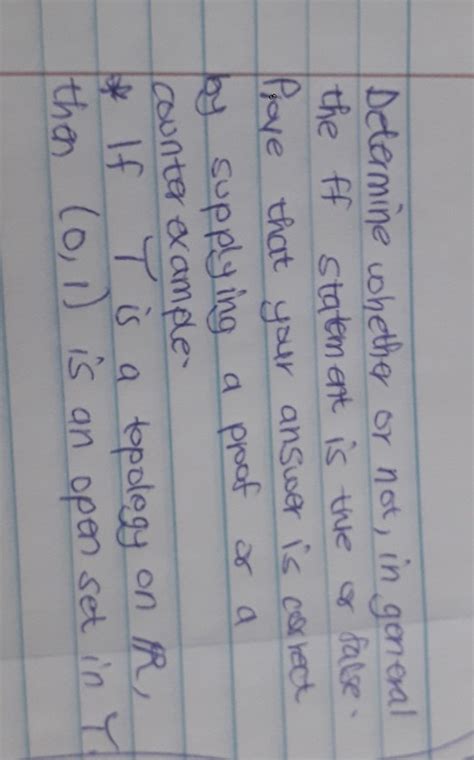 Determine whether or not, in general
the ff statement is true or false.
Prove that your answer is correct
by supplying a proof or a
counterexample.
* If Υ is a topology on ℝ,
then (0,1) is an open set in Υ.